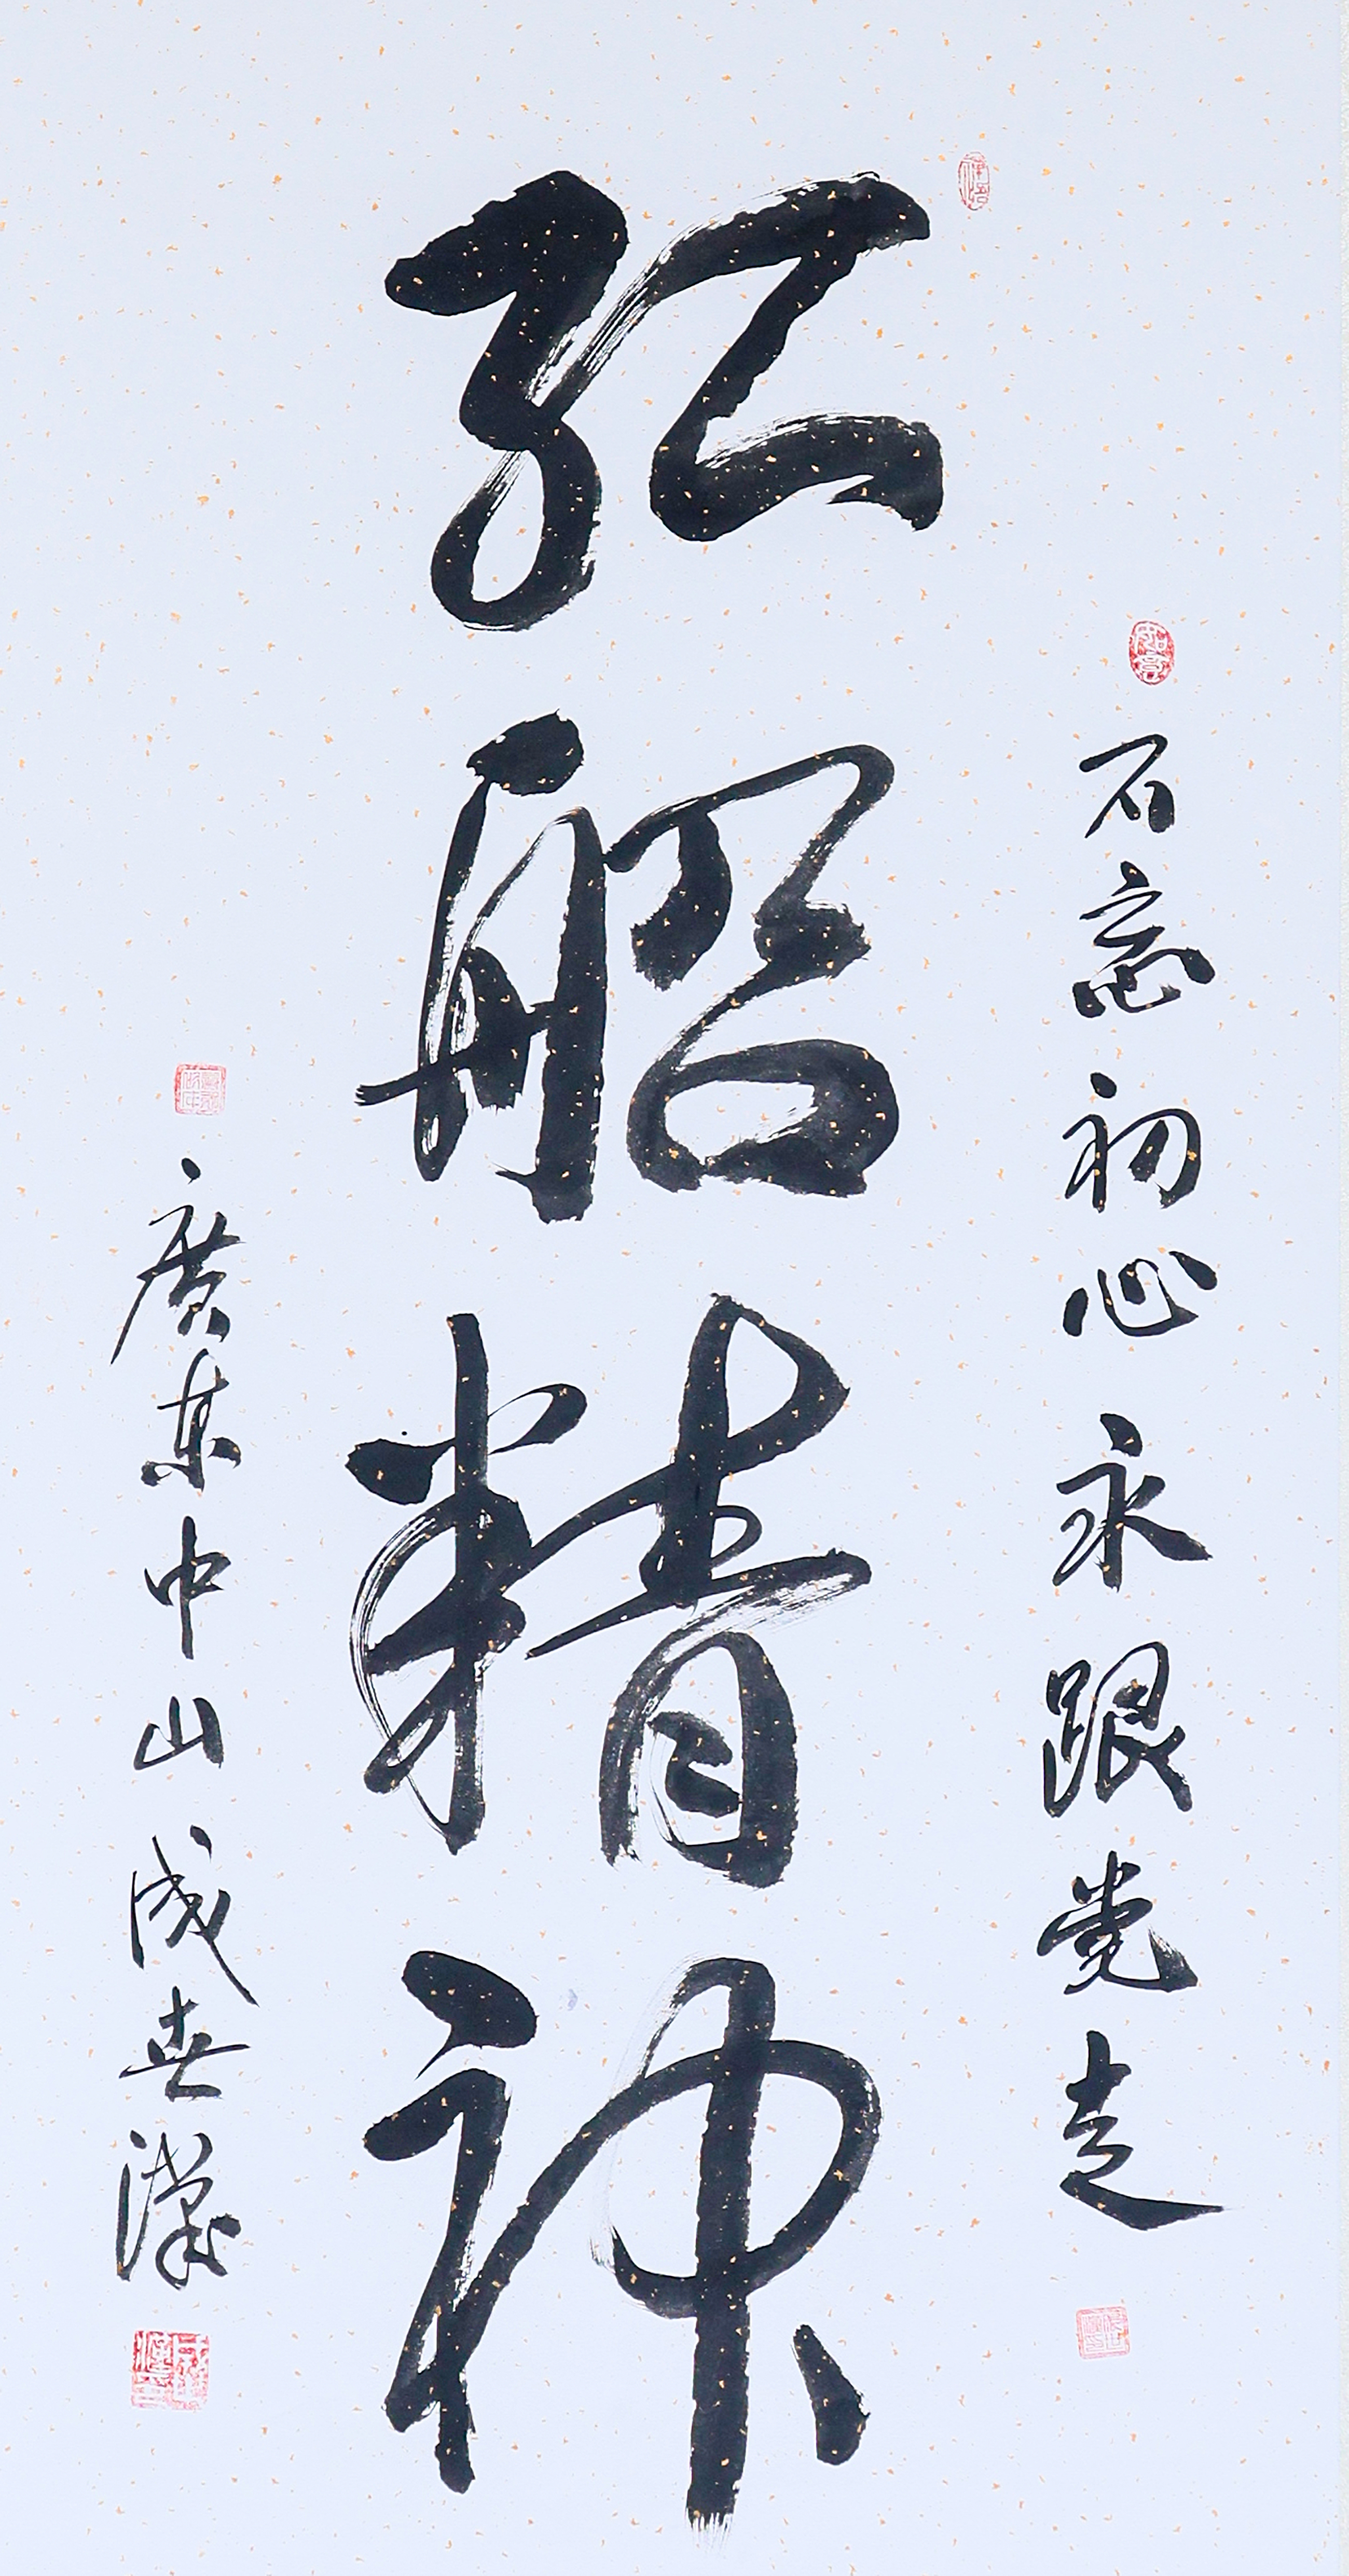 不忘初心永跟党走
红船精神
廣東中山成世